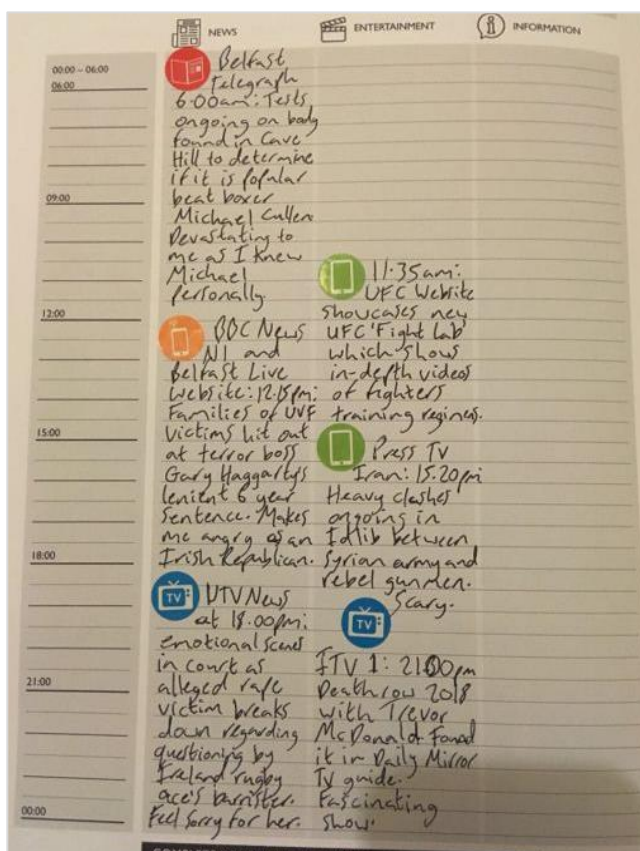 NEWS
ENTERTAINMENT
INFORMATION
00:00 – 06:00
06:00
09:00
12:00
15:00
18:00
21:00
00:00
Belfast
Telegraph
6.00am: Tests
ongoing on body
found in Cave
Hill to determine
if it is popular
beat boxer
Michael Cullen
Devastating to
me as I knew
Michael
personally.
BBC News
NI and
Belfast Live
Website: 12.15pm:
Families of UVF
victims hit out
at terror boss
Gary Haggarty's
lenient 6 year
sentence. Makes
me angry as an
Irish Republican.
TV
UTV News
at 18.00pm:
emotional scenes
in court as
alleged rape
victim breaks
down regarding
questioning by
Ireland rugby
ace's barrister.
Feel sorry for her.
11.35am:
UFC Website
showcases new
UFC 'Fight Lab'
which shows
in-depth videos
of fighters
training regimens.
Press TV
Iran: 15.20pm
Heavy clashes
ongoing in
Idlib between
Syrian army and
rebel gunmen.
Scary.
TV
ITV 1: 21.00pm
Death row 2018
with Trevor
McDonald. Found
it in Daily Mirror
TV guide.
Fascinating
show.